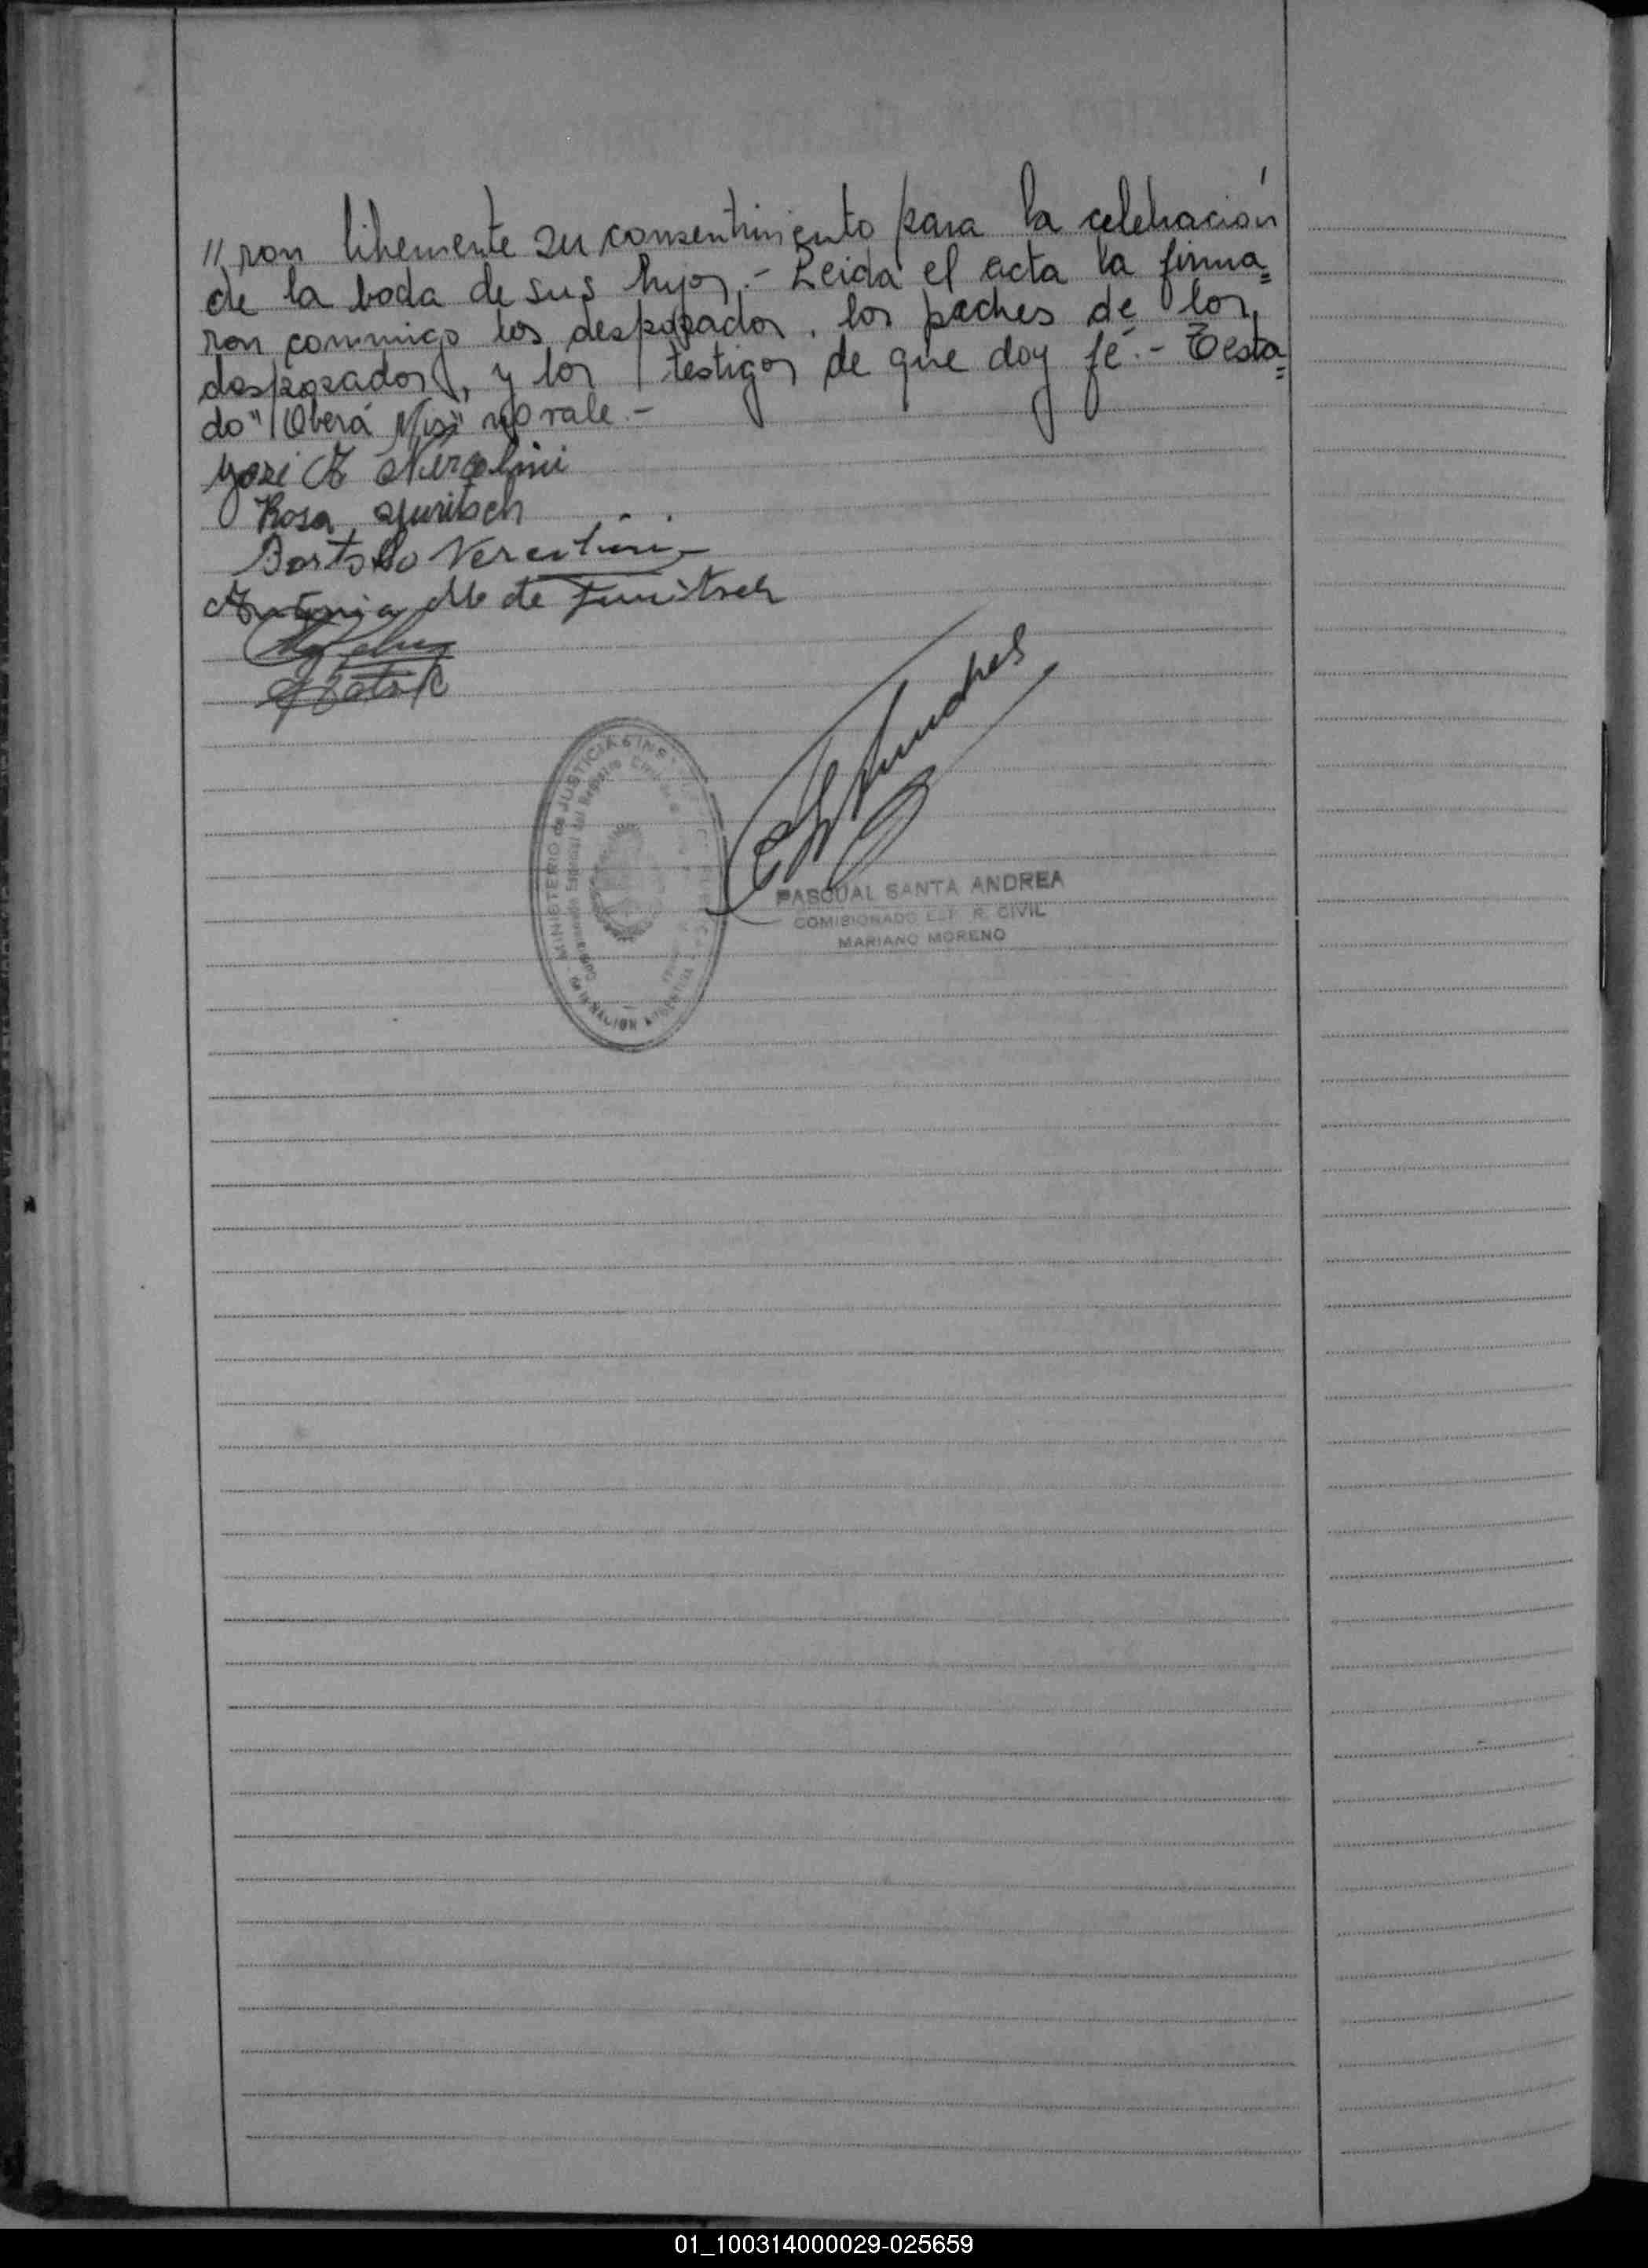 // ron libremente su consentimiento para la celebración
de la boda de sus hijos.- Leida el acta la firma=
ron conmigo los desposados, los padres de los
desposados, y los testigos de que doy fé.- Testa=
do "Oberá Mis" no vale.-
José A Vercelini
Rosa Juritsch
Bortollo
Antonia M de Juritsch
MINISTERIO de JUSTICIA é INS
Registro Civil
de la NACION ARGENTINA
PASCUAL SANTA ANDREA
COMISIONADO E.F. R. CIVIL
MARIANO MORENO
01_100314000029-025659